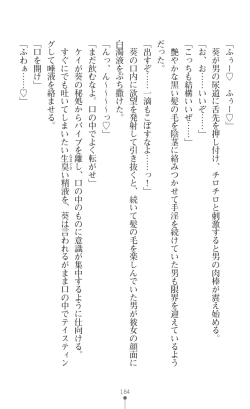 「ふぅー♡　ふぅー♡」
　葵が男の尿道に舌先を押し付け、チロチロと刺激すると男の肉棒が震え始める。
「お、おお……いいぞ……」
「こっちも結構いいぜ……」
　艶やかな黒い髪の毛を陰茎に絡みつかせて手淫を続けていた男も限界を迎えているよう
だった。
「出すぞ……一滴もこぼすなよ……っ！」
　葵の口内に欲望を発射して引き抜くと、続いて髪の毛を楽しんでいた男が彼女の顔面に
白濁液をぶち撒けた。
「んっ、ん～～～～っ♡」
「まだ飲むなよ、口の中でよく転がせ」
　ケイが葵の秘処からバイブを離し、口の中のものに意識が集中するように仕向ける。
　すぐにでも吐いてしまいたい生臭い精液を、葵は言われるがまま口の中でテイスティン
グして唾液を絡ませる。
「口を開け」
「ふわぁ……♡」
184